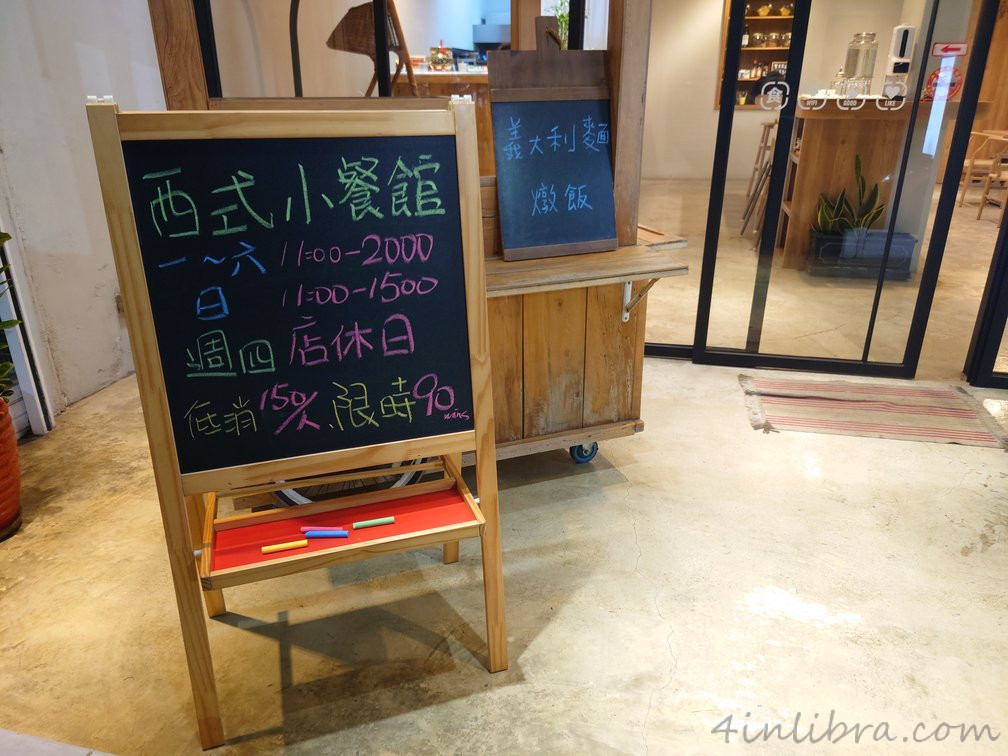 西式小餐館
一～六 11:00-2000
日 11:00-1500
週四 店休日
低消150/人、限時90mins
義大利麵
燉飯
食
WIFI
GOOD
LIKE
4inlibra.com